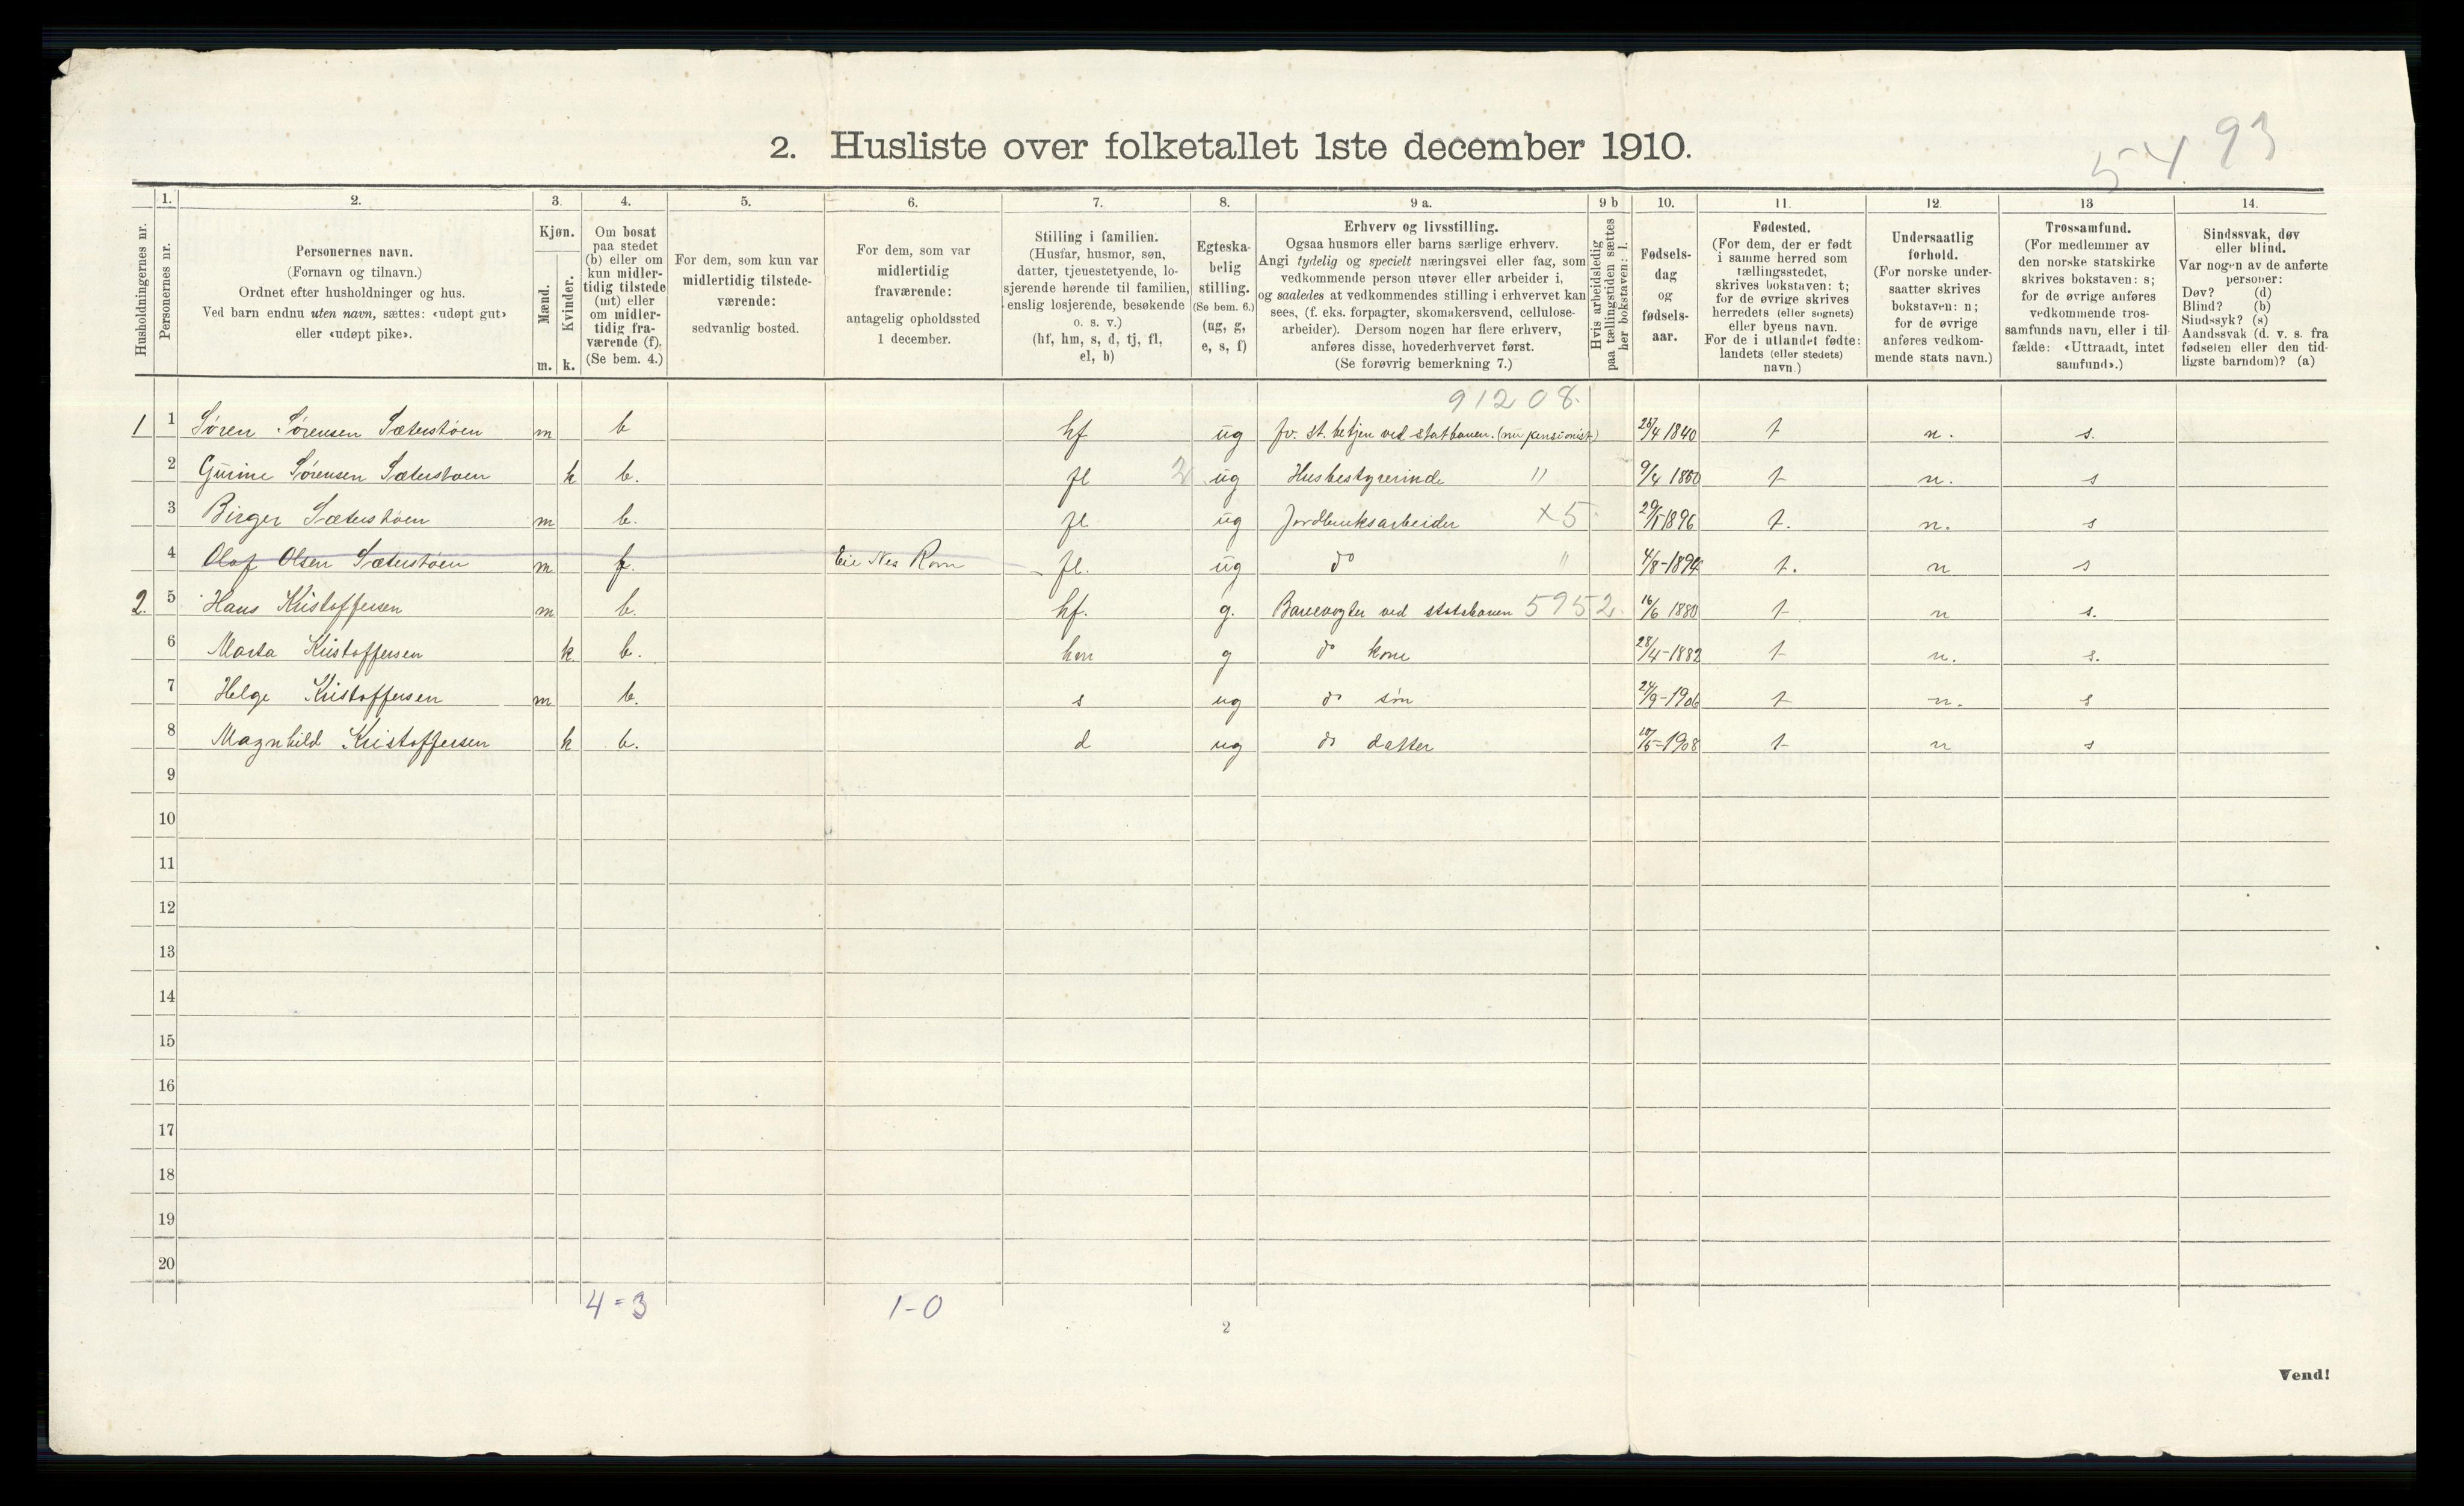 5 4. 93
2. Husliste over folketallet 1ste december 1910.
Husholdningernes nr.
1. Personernes nr.
2. Personernes navn.
(Fornavn og tilnavn.)
Ordnet efter husholdninger og hus.
Ved barn endnu uten navn, sættes: «udøpt gut»
eller «udøpt pike».
3. Kjøn.
Mænd. m.
Kvinder. k.
4. Om bosat
paa stedet
(b) eller om
kun midler-
tidig tilstede
(mt) eller
om midler-
tidig fra-
værende (f).
(Se bem. 4.)
5. For dem, som kun var
midlertidig tilstede-
værende:
sedvanlig bosted.
6. For dem, som var
midlertidig
fraværende:
antagelig opholdssted
1 december.
7. Stilling i familien.
(Husfar, husmor, søn,
datter, tjenestetyende, lo-
sjerende hørende til familien,
enslig losjerende, besøkende
o. s. v.)
(hf, hm, s, d, tj, fl,
el, b)
8. Egteska-
belig
stilling.
(Se bem. 6.)
(ug, g,
e, s, f)
9 a. Erhverv og livsstilling.
Ogsaa husmors eller barns særlige erhverv.
Angi tydelig og specielt næringsvei eller fag, som
vedkommende person utøver eller arbeider i,
og saaledes at vedkommendes stilling i erhvervet kan
sees, (f. eks. forpagter, skomakersvend, cellulose-
arbeider). Dersom nogen har flere erhverv,
anføres disse, hovederhvervet først.
(Se forøvrig bemerkning 7.)
9 b Hvis arbeidsledig
paa tællingstiden sættes
her bokstaven: l.
10. Fødsels-
dag
og
fødsels-
aar.
11. Fødested.
(For dem, der er født
i samme herred som
tællingsstedet,
skrives bokstaven: t;
for de øvrige skrives
herredets (eller sognets)
eller byens navn.
For de i utlandet fødte:
landets (eller stedets)
navn.)
12. Undersaatlig
forhold.
(For norske under-
saatter skrives
bokstaven: n;
for de øvrige
anføres vedkom-
mende stats navn.)
13 Trossamfund.
(For medlemmer av
den norske statskirke
skrives bokstaven: s;
for de øvrige anføres
vedkommende tros-
samfunds navn, eller i til-
fælde: «Uttraadt, intet
samfund».)
14. Sindssvak, døv
eller blind.
Var nogen av de anførte
personer:
Døv? (d)
Blind? (b)
Sindssyk? (s)
Aandssvak (d. v. s. fra
fødselen eller den tid-
ligste barndom)? (a)
91208.
1 1 Søren Sørensen Sæterstøen m b hf ug fv. st. betjen ved statbanen. (nu pensionist) 26/4 1840 t n. s.
2 Gurine Sørensen Sæterstøen k b. fl 2 ug Husbestyrerinde " 9/4 1850 t n. s
3 Birger Sæterstøen m b. fl ug Jordbruksarbeider x5 29/5 1896 t. n. s
4 Olaf Olsen Sæterstøen m f. Eie Nes Rom fl. ug do " 4/8-1894 t. n s
2. 5 Hans Kristoffersen m b. hf. g. Banevogter ved statsbanen 5952. 16/6 1880 t n s.
6 Marta Kristoffersen k. b. hm g do kone 28/4-1882 t n. s.
7 Helge Kristoffersen m b. s ug do søn 24/9-1906 t n. s
8 Magnhild Kristoffersen k b. d ug do datter 10/5-1908 t n s
9
10
11
12
13
14
15
16
17
18
19
20
4=3 1-0
2
Vend!